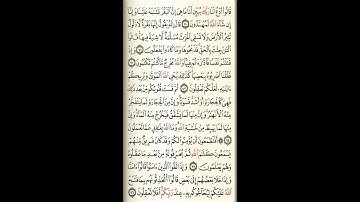 قَالُوا۟ ٱدْعُ لَنَا رَبَّكَ يُبَيِّن لَّنَا مَا هِىَ إِنَّ ٱلْبَقَرَ تَشَٰبَهَ عَلَيْنَا وَإِنَّآ
إِن شَآءَ ٱللَّهُ لَمُهْتَدُونَ ٧٠ قَالَ إِنَّهُۥ يَقُولُ إِنَّهَا بَقَرَةٌ لَّا ذَلُولٌ
تُثِيرُ ٱلْأَرْضَ وَلَا تَسْقِى ٱلْحَرْثَ مُسَلَّمَةٌ لَّا شِيَةَ فِيهَا قَالُوا۟
ٱلْـَٰٔنَ جِئْتَ بِٱلْحَقِّ فَذَبَحُوهَا وَمَا كَادُوا۟ يَفْعَلُونَ ٧١ وَإِذْ
قَتَلْتُمْ نَفْسًا فَٱدَّٰرَْٰٔتُمْ فِيهَا وَٱللَّهُ مُخْرِجٌ مَّا كُنتُمْ تَكْتُمُونَ ٧٢
فَقُلْنَا ٱضْرِبُوهُ بِبَعْضِهَا كَذَٰلِكَ يُحْىِ ٱللَّهُ ٱلْمَوْتَىٰ وَيُرِيكُمْ
ءَايَٰتِهِۦ لَعَلَّكُمْ تَعْقِلُونَ ٧٣ ثُمَّ قَسَتْ قُلُوبُكُم مِّنۢ بَعْدِ ذَٰلِكَ
فَهِىَ كَٱلْحِجَارَةِ أَوْ أَشَدُّ قَسْوَةً وَإِنَّ مِنَ ٱلْحِجَارَةِ لَمَا يَتَفَجَّرُ
مِنْهُ ٱلْأَنْهَٰرُ وَإِنَّ مِنْهَا لَمَا يَشَّقَّقُ فَيَخْرُجُ مِنْهُ ٱلْمَآءُ وَإِنَّ
مِنْهَا لَمَا يَهْبِطُ مِنْ خَشْيَةِ ٱللَّهِ وَمَا ٱللَّهُ بِغَٰفِلٍ عَمَّا تَعْمَلُونَ
٧٤ أَفَتَطْمَعُونَ أَن يُؤْمِنُوا۟ لَكُمْ وَقَدْ كَانَ فَرِيقٌ مِّنْهُمْ
يَسْمَعُونَ كَلَٰمَ ٱللَّهِ ثُمَّ يُحَرِّفُونَهُۥ مِنۢ بَعْدِ مَا عَقَلُوهُ
وَهُمْ يَعْلَمُونَ ٧٥ وَإِذَا لَقُوا۟ ٱلَّذِينَ ءَامَنُوا۟ قَالُوٓا۟ ءَامَنَّا
وَإِذَا خَلَا بَعْضُهُمْ إِلَىٰ بَعْضٍ قَالُوٓا۟ أَتُحَدِّثُونَهُم بِمَا فَتَحَ
ٱللَّهُ عَلَيْكُمْ لِيُحَآجُّوكُم بِهِۦ عِندَ رَبِّكُمْ أَفَلَا تَعْقِلُونَ ٧٦